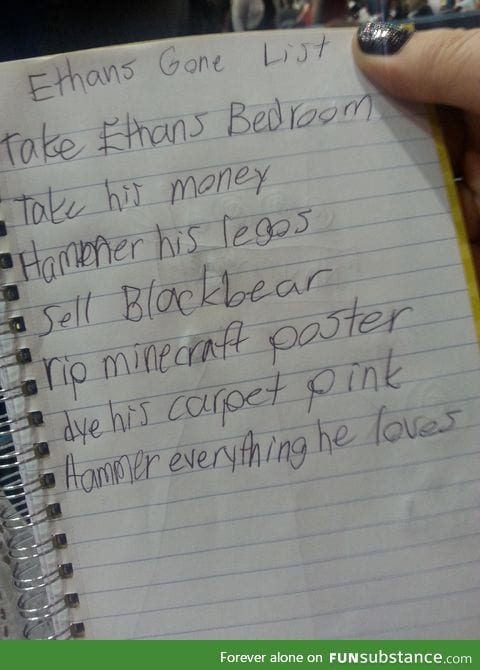 Ethans Gone List
Take Ethans Bedroom
Take his money
Hammer his legos
Sell Blackbear
rip minecraft poster
dye his carpet pink
Hammer everything he loves
Forever alone on FUNsubstance.com